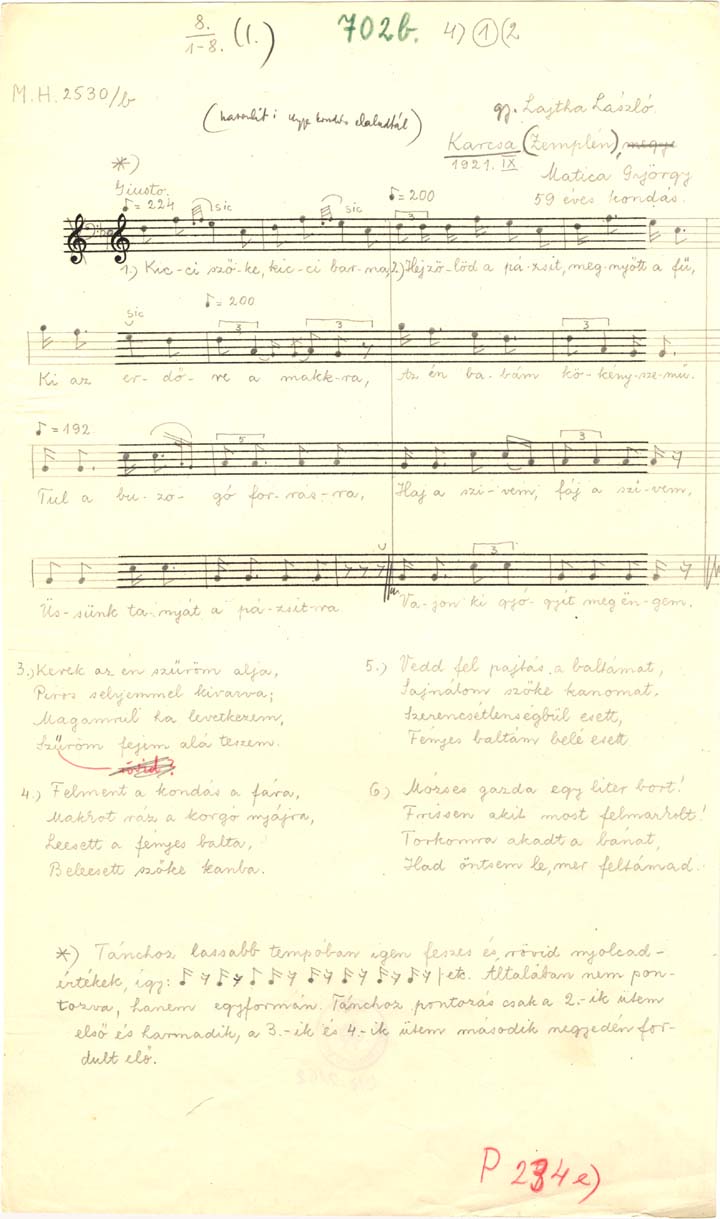 8.
1-8. (I.)
702b. 4) 1 (2
M.H. 2530/b
gy. Lajtha László.
kondás elaludtál)
Karcsa (Zemplén), megye
1921. IX
Matica György
59 éves kondás.
*)
Giusto.
♪ = 224 sic sic ♪ = 200
3
1.) Kic-ci sző-ke, kic-ci bar-na, 2.) Hej ző-löd a pá-zsit, meg-nyőtt a fű,
sic ♪ = 200
3 3 3
Ki az er-dő-re a makk-ra, Az én ba-bám kö-kény-sze-mű.
♪ = 192
5 3
Tul a bu-zo-gó for-rás-ra, Haj a szi-vem, fáj a szí-vem,
3
Üs-sünk ta-nyát a pá-zsit-ra Va-jon ki gyó-gyít meg ën-gem.
3.) Kerek az én szűröm alja,
Piros selyemmel kivarva;
Magamrul ha levetkezem,
Szűröm fejem alá teszem.
rövid?
4.) Felment a kondás a fára,
Makkot ráz a korgó nyájra,
Leesett a fényes balta,
Beleesett szőke kanba.
5.) Vedd fel pajtás a baltámat,
Sajnálom szőke kanomat.
Szerencsétlenségbül esett,
Fényes baltám belé esett
6) Mózses gazda egy liter bort!
Frissen akit most felmarkolt!
Torkomra akadt a bánat,
Had öntsem le, mer feltámad.
*) Tánchoz lassabb tempóban igen feszes és rövid nyolcad-
értékek, így: etc. Általában nem pon-
tozva, hanem egyformán. Tánchoz pontozás csak a 2.-ik ütem
első és harmadik, a 3.-ik és 4.-ik ütem második negyedén for-
dult elő.
P 234 e)